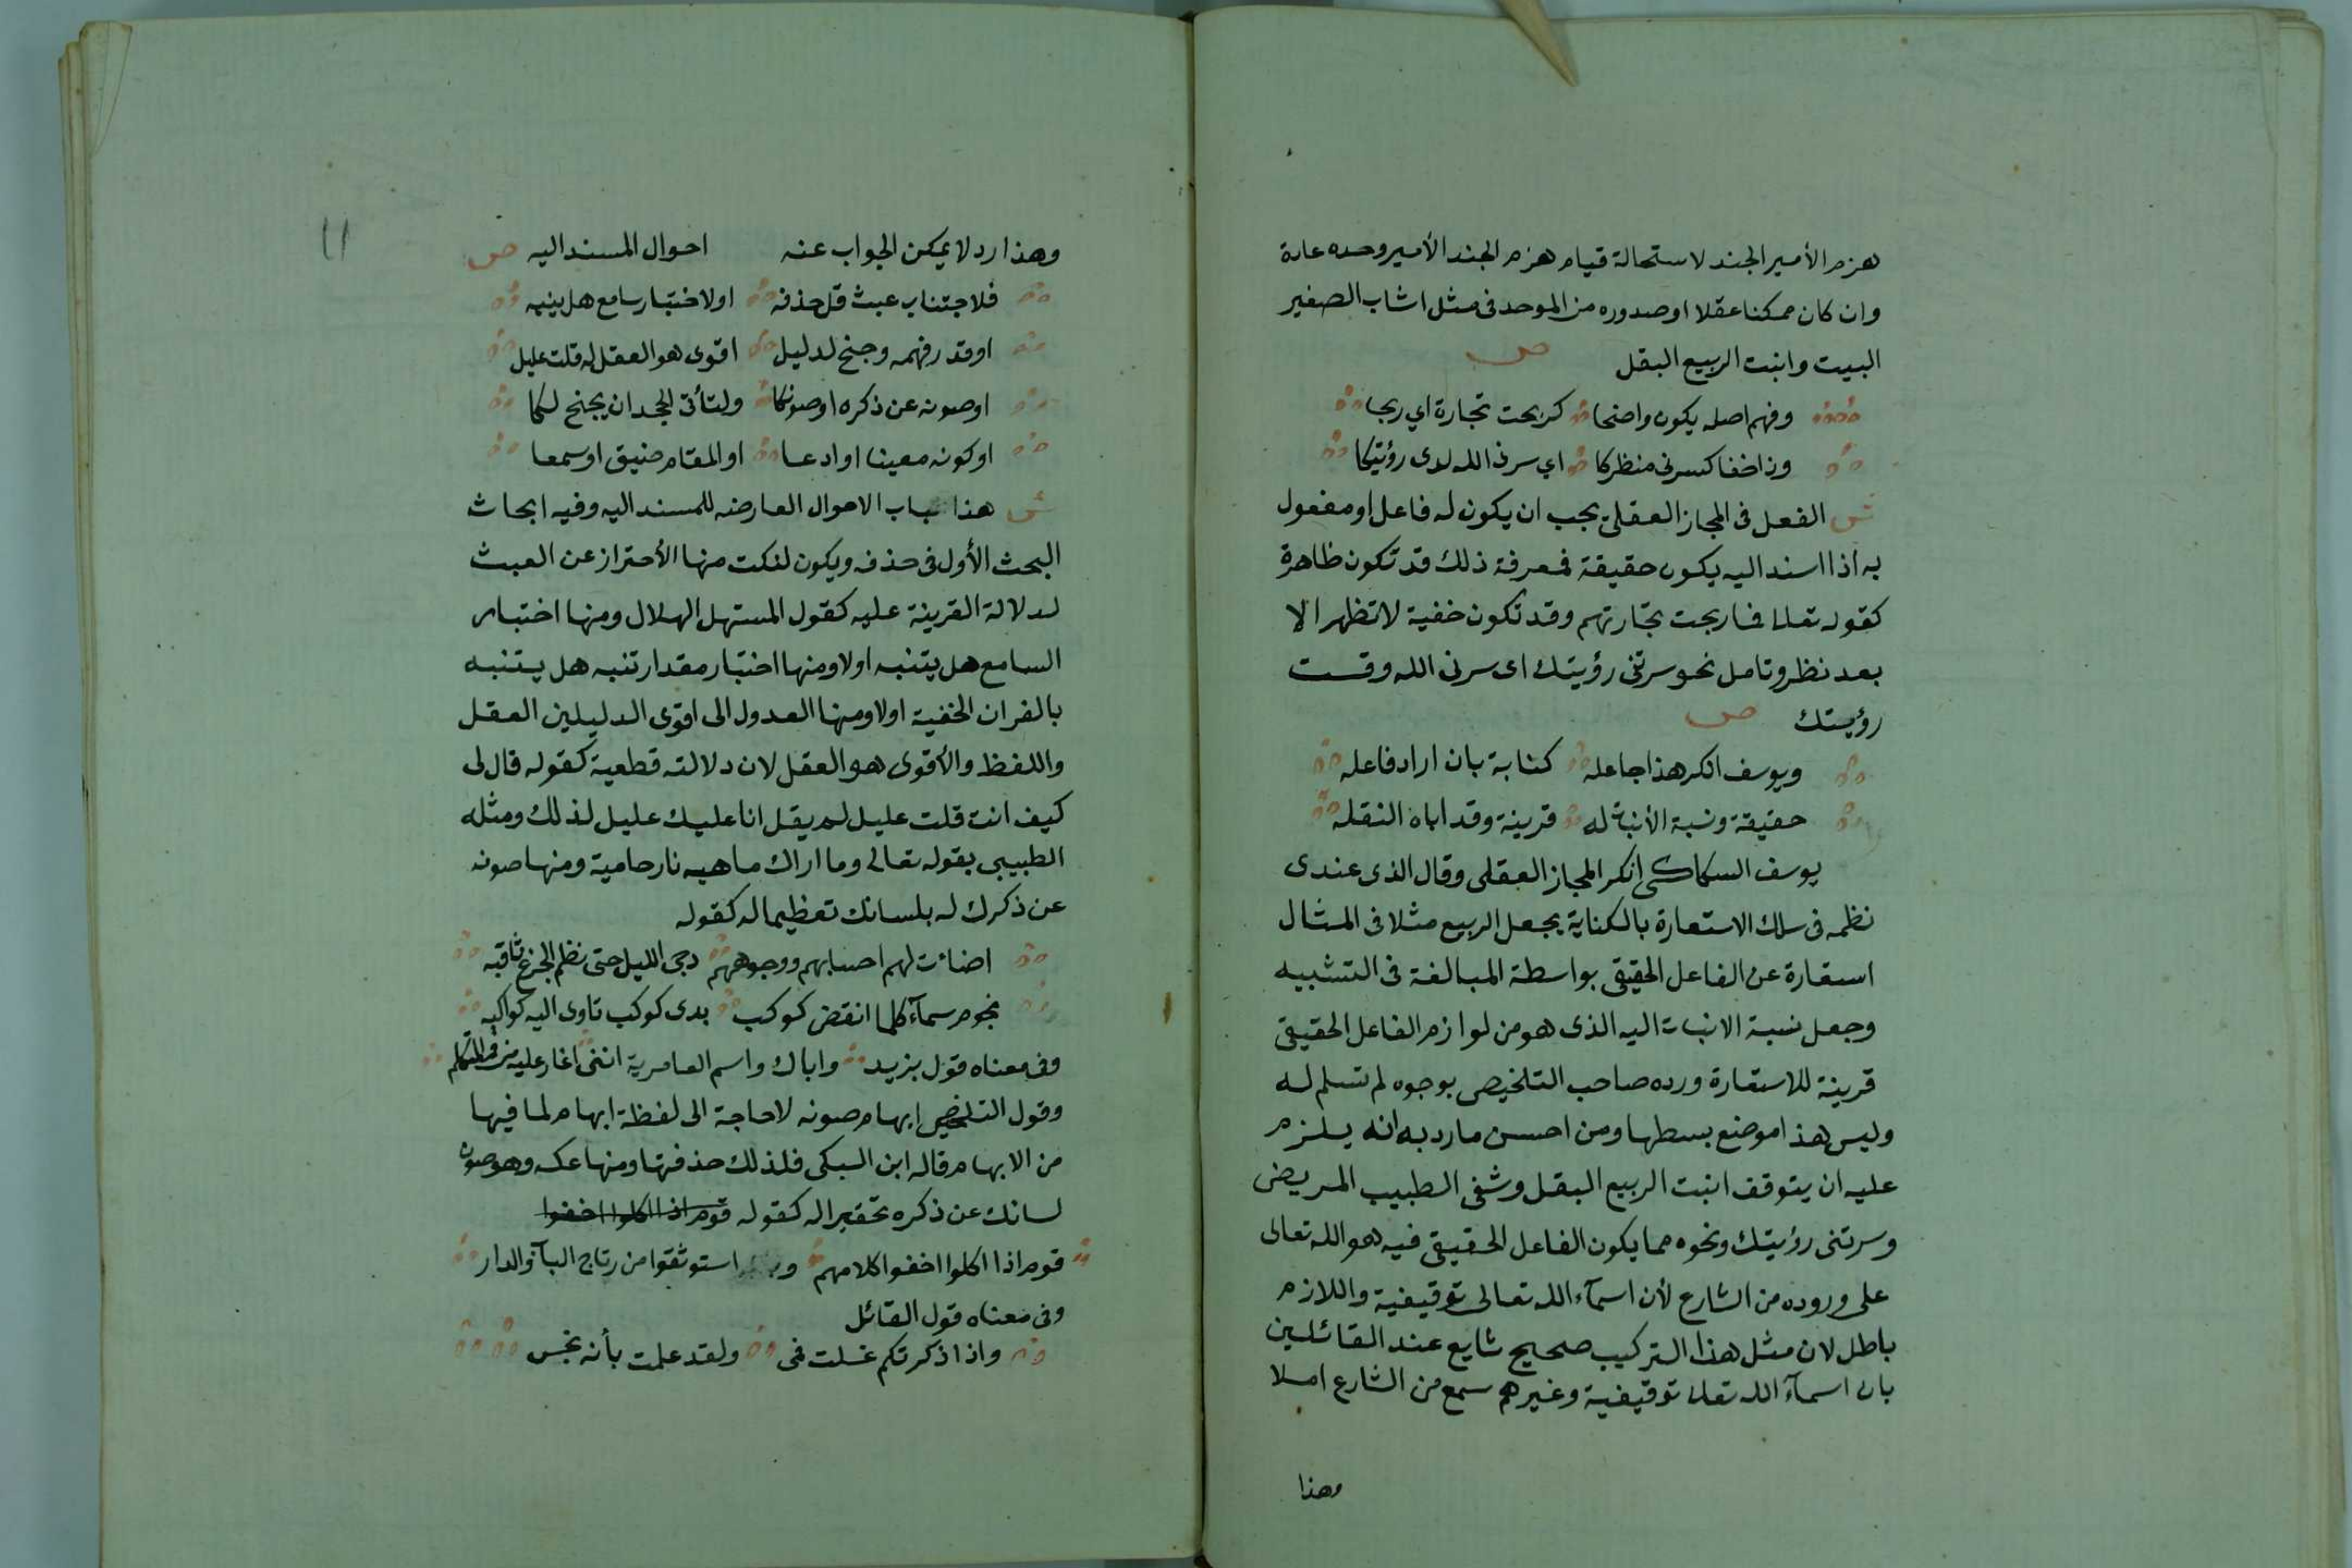 هزم الأمير الجند لاستحالة قيام هزم الجند الأمير وحده عادة
وان كان ممكنا عقلا او صدوره من الموحد في مثل اشاب الصغير
البيت وانبت الربيع البقل ص
وفهم اصله يكون واضحا كربحت تجارة اي ربحا
وذا خفا كسرني منظركا اي سرني الله لدى رؤيتكا
ش الفعل في المجاز العقلي يجب ان يكون له فاعل او مفعول
به اذا اسند اليه يكون حقيقة فمعرفة ذلك قد تكون ظاهرة
كقوله تعالى فما ربحت تجارتهم وقد تكون خفية لا تظهر الا
بعد نظر وتامل نحو سرتني رؤيتك اى سرني الله وقت
رؤيتك ص
ويوسف انكر هذا جاعله كناية بان اراد فاعله
حقيقة ونسبة الأنبات له قرينة وقد اباه النقله
يوسف السكاكي انكر المجاز العقلى وقال الذى عندى
نظمه في سلك الاستعارة بالكناية يجعل الربيع مثلا في المثال
استعارة عن الفاعل الحقيقي بواسطة المبالغة في التشبيه
وجعل نسبة الانبات اليه الذى هو من لوازم الفاعل الحقيقي
قرينة للاستعارة ورده صاحب التلخيص بوجوه لم تسلم له
وليس هذا موضع بسطها ومن احسن ما رد به انه يلزم
عليه ان يتوقف انبت الربيع البقل وشفى الطبيب المريض
وسرتنى رؤيتك ونحوه مما يكون الفاعل الحقيقي فيه هو الله تعالى
على وروده من الشارع لأن اسمآء الله تعالى توقيفية واللازم
باطل لان مثل هذا التركيب صحيح شايع عند القائلين
بان اسمآء الله تعالى توقيفية وغيرهم سمع من الشارع املا
وهذا
١١
وهذا رد لا يمكن الجواب عنه احوال المسند اليه ص
فلاجتناب عبث قل حذفه اولاختبار سامع هل ينبه
او قدر فهمه وجنح لدليل اقوى هو العقل له قلت عليل
او صونه عن ذكره او صونكا ولتأتي الجحد ان يجنح لكا
او كونه معينا او ادعا او المقام ضيق او سمعا
ش هذا باب الاحوال العارضه للمسند اليه وفيه ابحاث
البحث الأول في حذفه ويكون لنكت منها الأحتراز عن العبث
لدلالة القرينة عليه كقول المستهل الهلال ومنها اختبار
السامع هل يتنبه اولا ومنها اختبار مقدار تنبه هل يتنبه
بالقران الخفية اولا ومنها العدول الى اقوى الدليلين العقل
واللفظ والأقوى هو العقل لان دلالته قطعية كقوله قال لى
كيف انت قلت عليل لم يقل انا عليل عليل لذلك ومثله
الطيبي بقوله تعالى وما ادراك ما هيه نار حامية ومنها صونه
عن ذكرك له بلسانك تعظيما له كقوله
اضائت لهم احسابهم ووجوههم دجى الليل حتى نظم الجزع ثاقبه
نجوم سمآء كلما انقض كوكب بدى كوكب تاوى اليه كواكبه
وفى معناه قول يزيد واياك واسم العامرية انني اغار عليه من فم المتكلم
وقول التلخيص ايهام صونه لا حاجة الى لفظة ايهام لما فيها
من الايهام قاله ابن السبكى فلذلك حذفتها ومنها عكسه وهو صون
لسانك عن ذكره تحقيرا له كقوله قوم اذا اكلوا اخفوا
قوم اذا اكلوا اخفوا كلامهم استوثقوا من رتاج الباب والدار
وفى معناه قول القائل
واذا ذكرتكم غسلت فمى ولقد علمت بأنه نجس